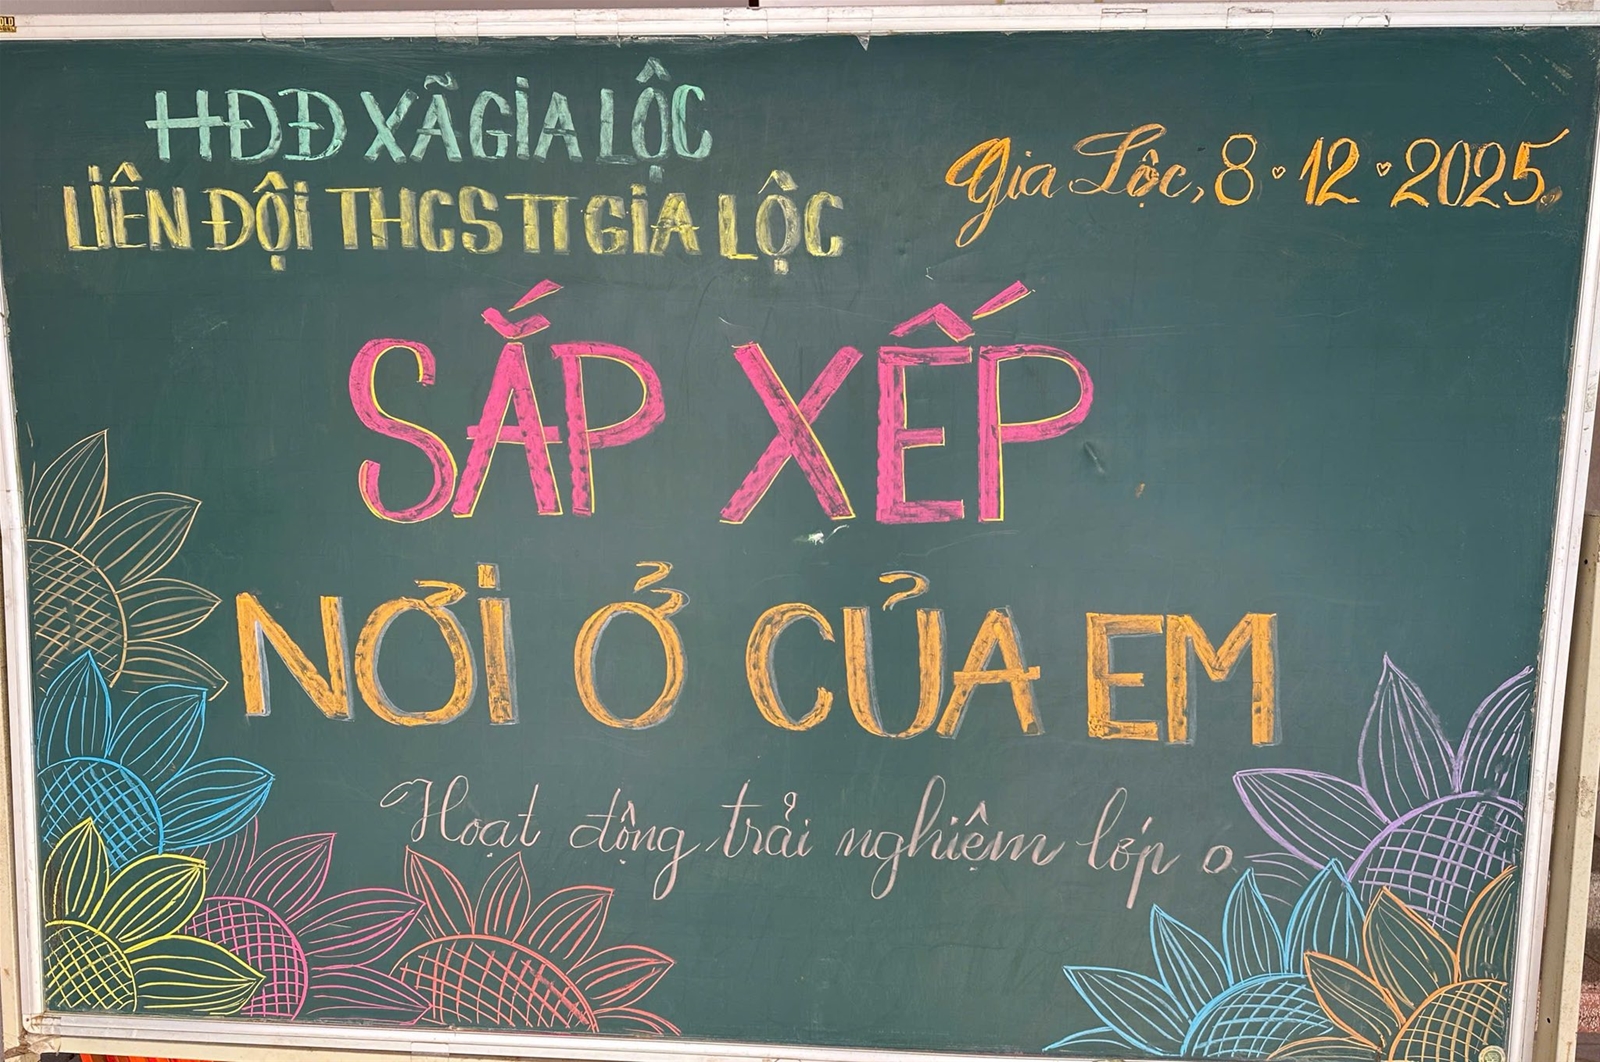 HĐĐ XÃ GIA LỘC
LIÊN ĐỘI THCS TT GIA LỘC
Gia Lộc, 8.12.2025.
SẮP XẾP
NƠI Ở CỦA EM
Hoạt động trải nghiệm lớp